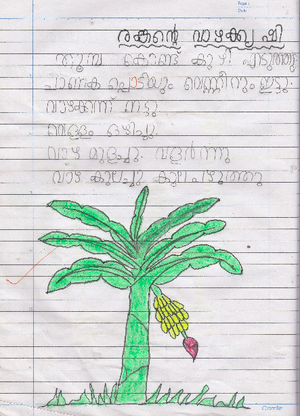 രങ്കന്റെ വാഴക്കൃഷി
തൂമ്പ കൊണ്ട് കുഴി എടുത്തു
ചാണക പ്പൊടിയും വെണ്ണീറും ഇട്ടു
വാഴക്കന്ന് നട്ടു
വെള്ളം ഒഴിച്ചു
വാഴ മുളച്ചു. വളർന്നു
വാഴ കുലച്ചു കുല പഴുത്തു